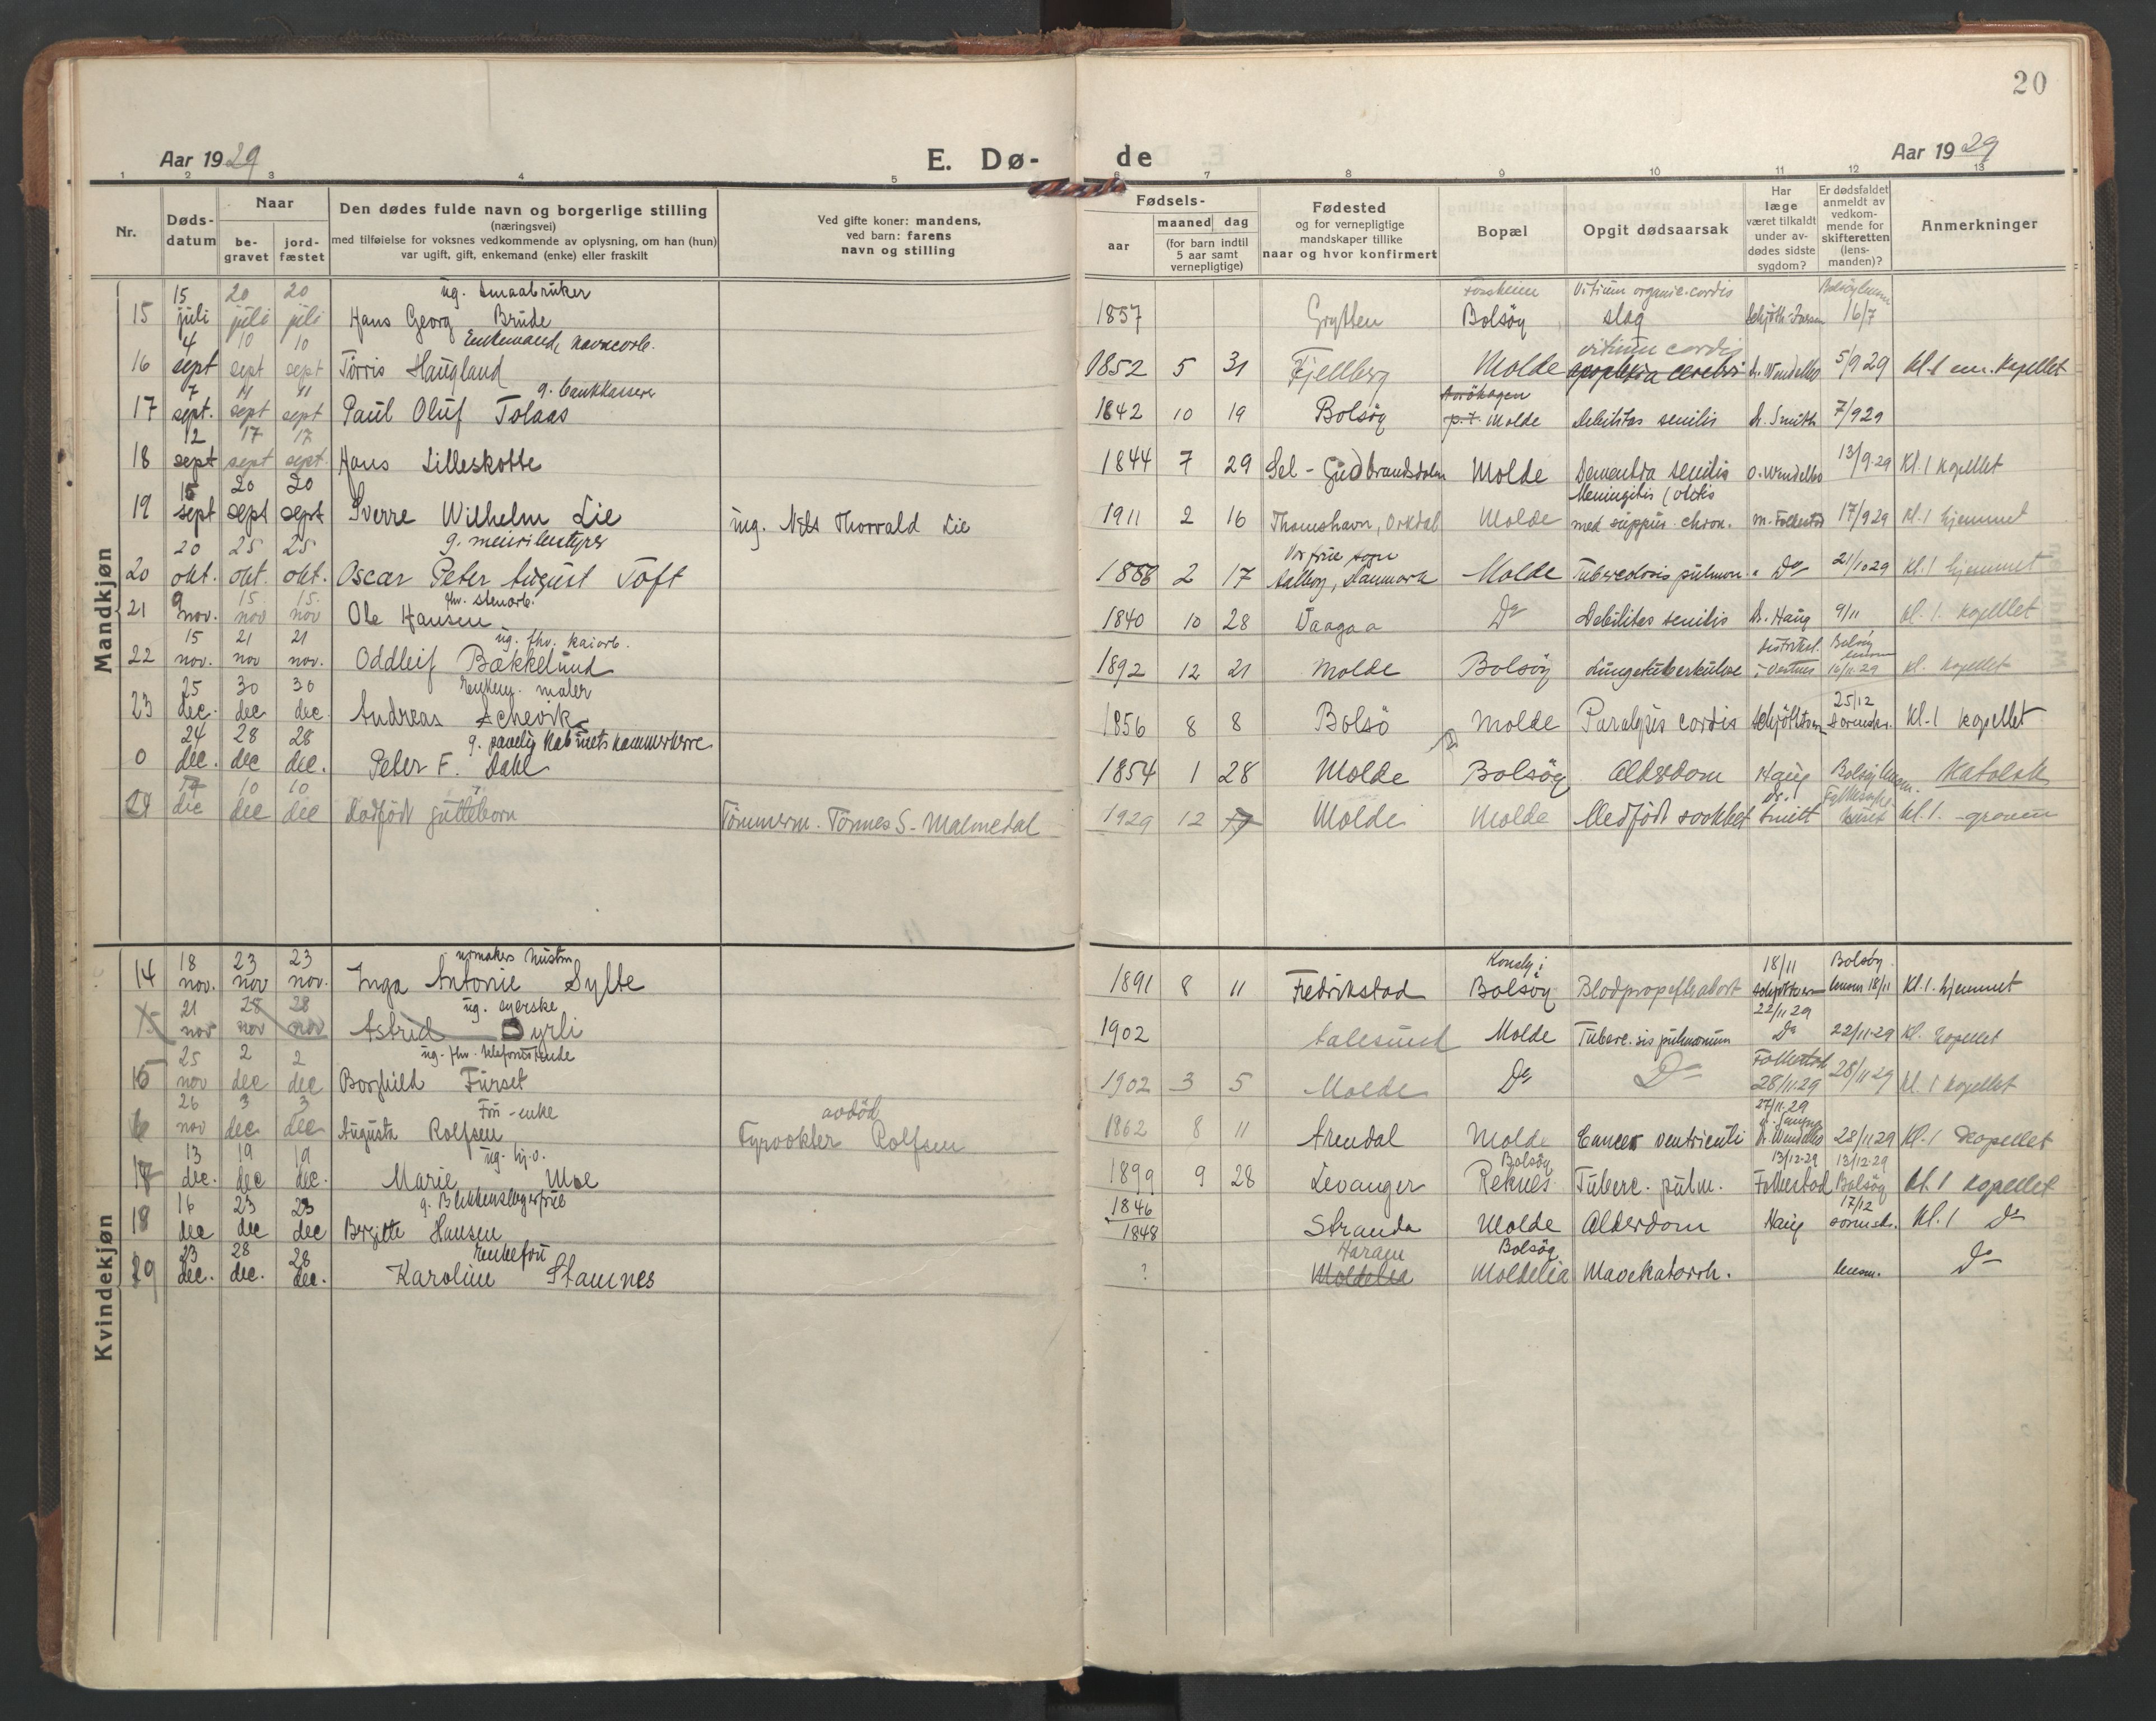 20
Aar 1929 E. Dø- de Aar 1929
1 2 3 4 5 6 7 8 9 10 11 12 13
Nr.
Døds-
datum
Naar
be-
gravet
jord-
fæstet
Den dødes fulde navn og borgerlige stilling
(næringsvei)
med tilføielse for voksnes vedkommende av oplysning, om han (hun)
var ugift, gift, enkemand (enke) eller fraskilt
Ved gifte koner: mandens,
ved barn: farens
navn og stilling
Fødsels-
aar
maaned dag
(for barn indtil
5 aar samt
vernepligtige)
Fødested
og for vernepligtige
mandskaper tillike
naar og hvor konfirmert
Bopæl
Opgit dødsaarsak
Har
læge
været tilkaldt
under av-
dødes sidste
sygdom?
Er dødsfaldet
anmeldt av
vedkom-
mende for
skifteretten
(lens-
manden)?
Anmerkninger
Mandkjøn
15 20 20 ug. Smaabruker Vitium organic. cordis
15 juli juli juli Hans Georg Brude 1857 Grytten Bolsøy slag 16/7
4 10 10 Enkemand, havnearb. vitium cordis
16 sept sept sept Torris Haugland 1852 5 31 Fjellberg Molde apoplexia cerebri dr. Wendelbo 5/9 29 kl. 1 em. Kapellet
7 11 11 g. bankkasserer
17 sept. sept sept Paul Oluf Tolaas 1842 10 19 Bolsöy p.t. Molde Debilitas senilis dr. Smith 7/9 29
12 17 17
18 sept sept sept. Hans Lilleskotte 1844 7 29 Sel - Gudbrandsdalen Molde Dementia senilis O. Wendelbo 13/9-29 Kl. 1 kapellet
15 20 20 Meningitis (otitis
19 sept sept sept Sverre Wilhelm Lie ing. Nils Thorvald Lie 1911 2 16 Thamshavn, Orkdal Molde med suppur. chron. m. Folkestad 17/9 29 Kl. 1 hjemmet
20 25 25 g. meieribestyrer Vor frue sogn
20 okt. okt. okt. Oscar Peter August Toft 1866 2 17 Aalborg, Danmark Molde Tuberculosis pulmon. " Do 21/10 29 kl. 1 hjemmet
9 15 15. fhv. stenarb.
21 nov. nov nov Ole Hansen 1840 10 28 Vaagaa Do Debilitas senilis Dr. Haug 9/11 kl. 1. kapellet
15 21 21 ug. fhv. kaiarb. Bolsöy
22 nov. nov nov. Oddleif Bakkelund 1892 12 21 Molde Bolsöy Lungetuberkulose 16/11-29 kl. kapellet
25 30 30 Enkem. maler 25/12
23 dec. dec dec Andreas Schevik 1856 8 8 Bolsö Molde Paralysis cordis Kl. 1 kapellet
24 28 28 g. pavelig Kabinetskammerherre
0 dec. dec dec. Peter F. Dahl 1854 1 28 Molde Bolsöy Alderdom Haug Bolsöy lensm. Katolsk
17 10 10
24 dec dec dec Dødfödt guttebarn Tömmerm. Tönnes S. Malmedal 1929 12 17 Molde Molde Medfödt svakhet Dr. Smith kl. 1. graven
Kvindekjøn
18 23 23 urmakers hustru 18/11 Bolsöy
14 nov. nov nov. Inga Antonie Sylte 1891 8 11 Fredrikstad Bolsöy lensm 18/11 Kl. 1. hjemmet
21 28 28 ug. syerske 22/11 29
15 nov nov nov Astrid Dyrli 1902 Aalesund Molde Tuberc. sis pulmonum Do 22/11-29 Kl. Kapellet
25 2 2 ug. fhv. telefonistinde Folkestad
15 nov dec dec Borghild Furset 1902 3 5 Molde Do Do 28/11 29 28/11 29 Kl. 1 kapellet
26 3 3 Fru - enke avdöd 27/11-29
16 nov dec dec Augusta Rolfsen Fyrvokter Rolfsen 1862 8 11 Arendal Molde Cancer ventriculi Dr. Wendelbo 28/11 29 Kl. 1 Kapellet
13 19 19 ug. hj. o. Bolsöy 13/12-29 13/12-29
17 dec. dec dec. Marie Moe 1899 9 28 Levanger Reknes Tuberc. pulm. Folkestad Bolsöy kl. 1 kapellet
16 23 23 g. Blikkenslagerfrue 1846 17/12
18 dec dec dec Bergitte Hansen 1848 Stranda Molde Alderdom Haug sorensk. Kl. 1 Do
23 28 28 Enkefru Haram Bolsöy
19 dec. dec. dec. Karoline Stamnes ? Moldelia Moldelia Mavekatarrh. lensm. Do